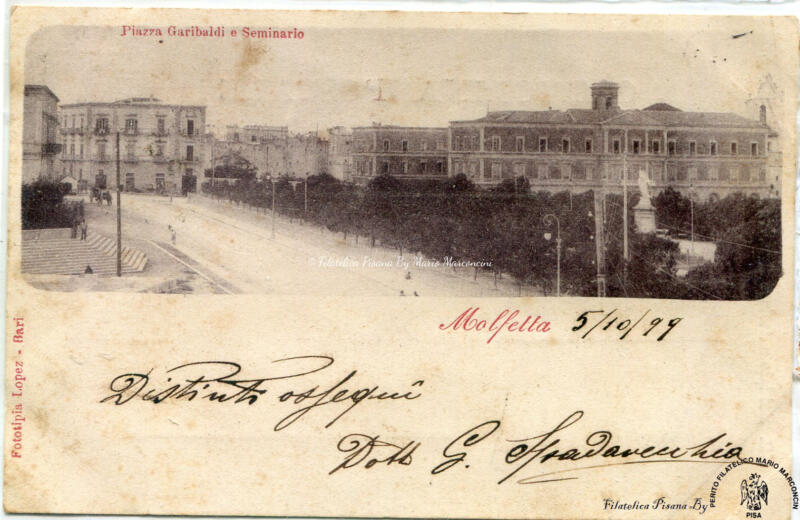 Piazza Garibaldi e Seminario
© Filatelica Pisana By Mario Marconcini
Molfetta 5/10/99
Fototipia Lopez - Bari
Distinti ossequi
Dott G. Spadavecchia
Filatelica Pisana By
PERITO FILATELICO MARIO MARCONCINI
PISA